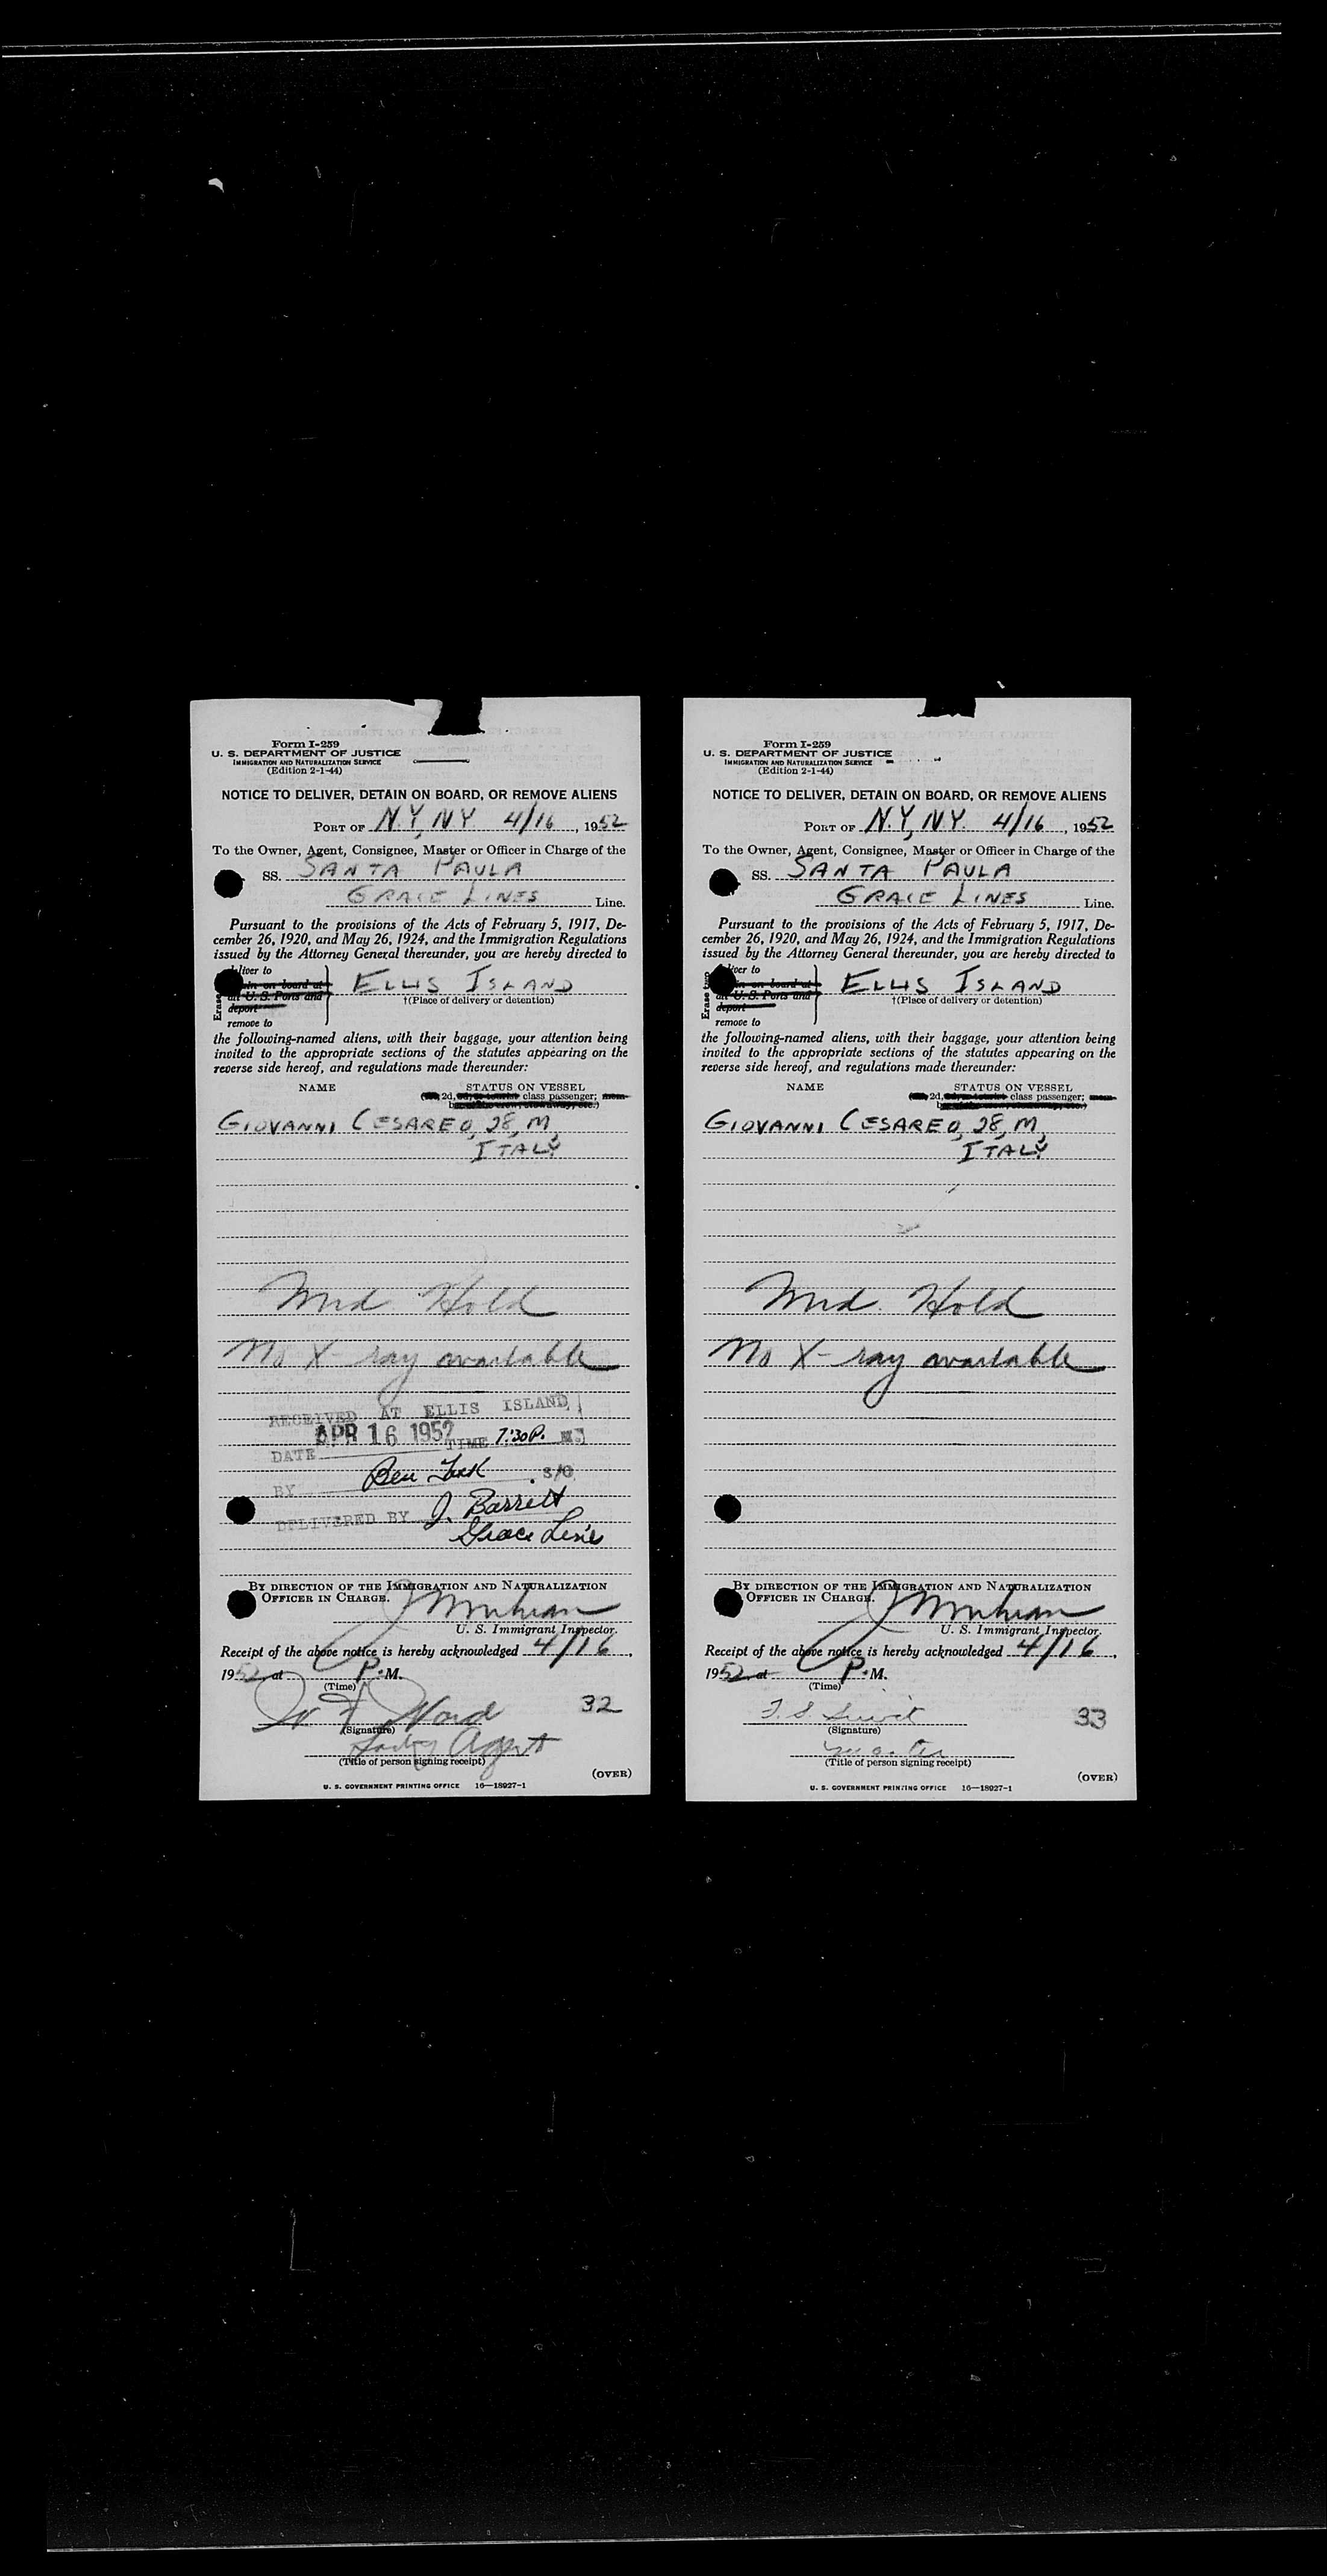 Form I-259
U. S. DEPARTMENT OF JUSTICE
IMMIGRATION AND NATURALIZATION SERVICE
(Edition 2-1-44)
NOTICE TO DELIVER, DETAIN ON BOARD, OR REMOVE ALIENS
PORT OF N.Y, NY 4/16, 1952
To the Owner, Agent, Consignee, Master or Officer in Charge of the
SS. SANTA PAULA
GRACE LINES Line.
Pursuant to the provisions of the Acts of February 5, 1917, De-
cember 26, 1920, and May 26, 1924, and the Immigration Regulations
issued by the Attorney General thereunder, you are hereby directed to
liver to
in on board at
all U. S. Ports and
deport
remove to
Erase
ELLIS ISLAND
†(Place of delivery or detention)
the following-named aliens, with their baggage, your attention being
invited to the appropriate sections of the statutes appearing on the
reverse side hereof, and regulations made thereunder:
NAME STATUS ON VESSEL
2d, class passenger; mem-
GIOVANNI CESAREO, 28, M,
ITALY
Med. Hold
No X-ray available
RECEIVED AT ELLIS ISLAND
DATE APR 16 1952 TIME 7:30 P. M.
BY Ben S/O
DELIVERED BY J. Barrett
Grace Line
BY DIRECTION OF THE IMMIGRATION AND NATURALIZATION
OFFICER IN CHARGE.
U. S. Immigrant Inspector.
Receipt of the above notice is hereby acknowledged 4/16,
1952 at P. M.
(Time)
Ward 32
(Signature)
Agent
(Title of person signing receipt)
(OVER)
U. S. GOVERNMENT PRINTING OFFICE 16—18927-1
Form I-259
U. S. DEPARTMENT OF JUSTICE
IMMIGRATION AND NATURALIZATION SERVICE
(Edition 2-1-44)
NOTICE TO DELIVER, DETAIN ON BOARD, OR REMOVE ALIENS
PORT OF N.Y, NY. 4/16, 1952
To the Owner, Agent, Consignee, Master or Officer in Charge of the
SS. SANTA PAULA
GRACE LINES Line.
Pursuant to the provisions of the Acts of February 5, 1917, De-
cember 26, 1920, and May 26, 1924, and the Immigration Regulations
issued by the Attorney General thereunder, you are hereby directed to
liver to
in on board at
all U. S. Ports and
deport
remove to
Erase two
ELLIS ISLAND
†(Place of delivery or detention)
the following-named aliens, with their baggage, your attention being
invited to the appropriate sections of the statutes appearing on the
reverse side hereof, and regulations made thereunder:
NAME STATUS ON VESSEL
2d, class passenger; mem-
GIOVANNI CESAREO, 28, M,
ITALY
Med. Hold
No X-ray available
BY DIRECTION OF THE IMMIGRATION AND NATURALIZATION
OFFICER IN CHARGE.
U. S. Immigrant Inspector.
Receipt of the above notice is hereby acknowledged 4/16,
1952 at P. M.
(Time)
33
(Signature)
Master
(Title of person signing receipt)
(OVER)
U. S. GOVERNMENT PRINTING OFFICE 16—18927-1